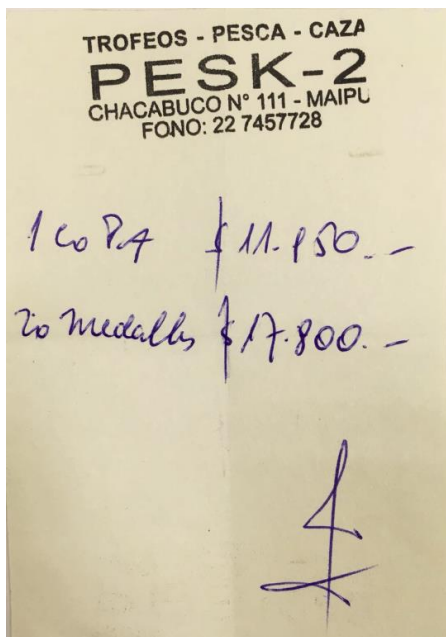 TROFEOS - PESCA - CAZA
PESK-2
CHACABUCO N° 111 - MAIPU
FONO: 22 7457728
1 COPA $ 11.950.-
20 Medallas $ 17.800.-